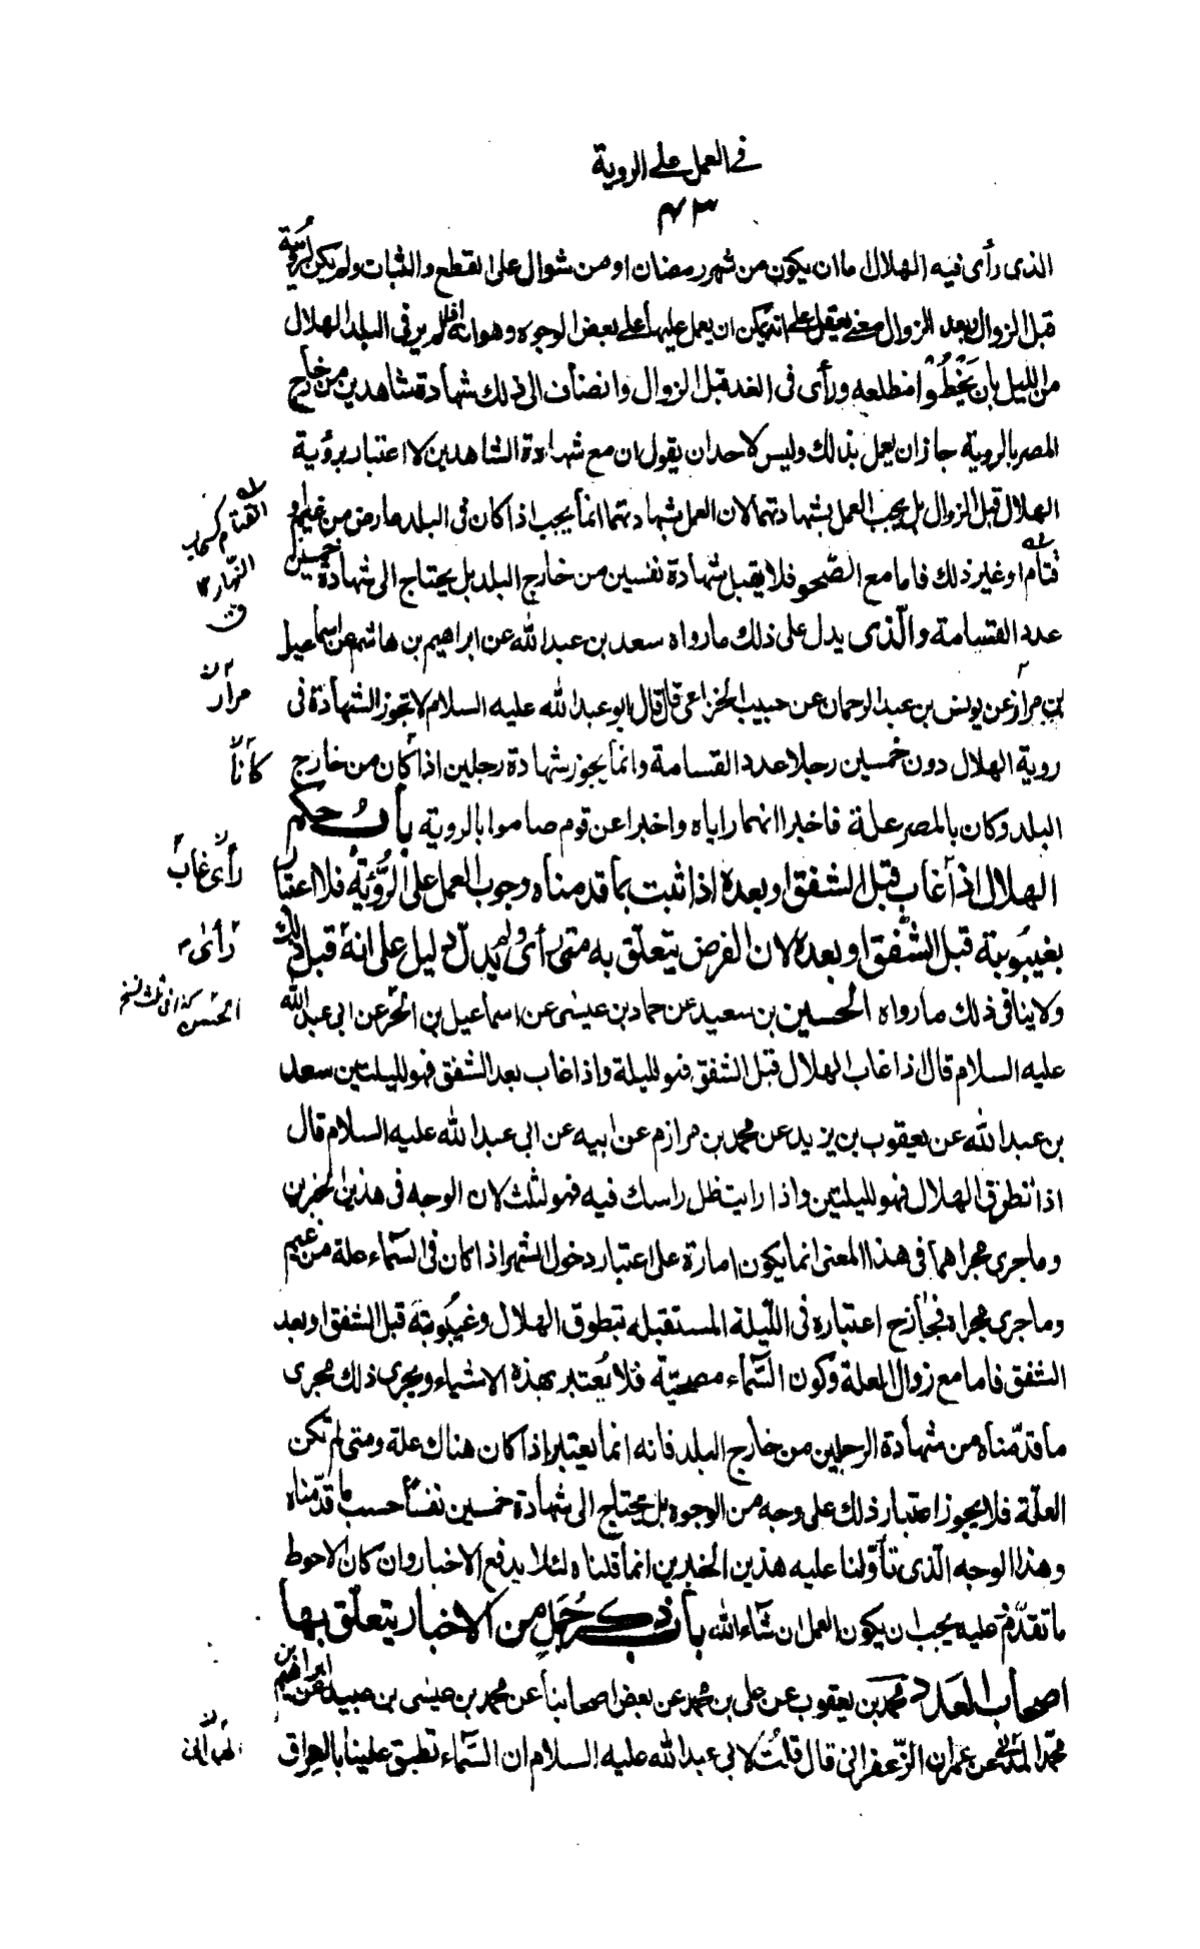 في العمل على الروية
٤٣
الذى رأى فيه الهلال ما ان يكون من شهر رمضان او من شوال على القطع والثبات ولم يكن لرؤية
قبل الزوال وبعد الزوال معنى يعقل على انه يمكن ان يعمل عليها على بعض الوجوه وهو انه اذا لم ير فى البلد الهلال
من الليل بان يَخْطُؤا مطلعه ورأى فى الغد قبل الزوال وانضاف الى ذلك شهادة شاهدين من خارج
المصر بالروية جاز ان يعمل بذلك وليس لاحد ان يقول ان مع شهادة الشاهدين لا اعتبار برؤية
الهلال قبل الزوال بل يجب العمل بشهادتهما لان العمل بشهادتهما انما يجب اذا كان فى البلد عارض من غيم او
قتام او غير ذلك فاما مع الصّحو فلا يقبل شهادة نفسين من خارج البلد بل يحتاج الى شهادة خمسين
عدد القسامة والّذى يدل على ذلك ما رواه سعد بن عبد الله عن ابراهيم بن هاشم عن اسماعيل
بن مرار عن يونس بن عبد الرحمان عن حبيب الخزاعى قال قال ابو عبد الله عليه السلام لا تجوز الشهادة فى
روية الهلال دون خمسين رجلا عدد القسامة وانما يجوز شهادة رجلين اذا كان من خارج
البلد وكان بالمصر علة فاخبرا انهما راياه واخبرا عن قوم صاموا بالروية باب حكم
الهلال اذا غاب قبل الشفق او بعده اذا ثبت بما قدمناه وجوب العمل على الرُّؤية فلا اعتبار
بغيبوبته قبل الشّفق او بعده لان الفرض يتعلّق به متى رأى ولم يدلّ دليل على انه قبل ذلك
ولا ينافى ذلك ما رواه الحسين بن سعيد عن حماد بن عيسى عن اسماعيل بن الحر عن ابى عبد الله
عليه السلام قال اذا غاب الهلال قبل الشفق فهو لليلة واذا غاب بعد الشفق فهو لليلتين سعد
بن عبد الله عن يعقوب بن يزيد عن محمد بن مرازم عن ابيه عن ابى عبد الله عليه السلام قال
اذا تطوق الهلال فهو لليلتين واذا رايت ظل راسك فيه فهو لثلث لان الوجه فى هذين الخبرين
وما جرى مجراهما فى هذا المعنى انما يكون امارة على اعتبار دخول الشهر اذا كان فى السّماء علة من غيم
وما جرى مجراه فجاز ح اعتباره فى اللّيلة المستقبله بتطوق الهلال وغيبوبته قبل الشفق او بعد
الشفق فاما مع زوال العلة وكون السّماء مصحيّة فلا يُعتبر بهذه الاشياء ويجرى ذلك مجرى
ما قدّمناه من شهادة الرجلين من خارج البلد فانه انما يعتبر اذا كان هناك علة ومتى لم تكن
العلّة فلا يجوز اعتبار ذلك على وجه من الوجوه بل يحتاج الى شهادة خمسين نفسا حسب ما قدّمناه
وهذا الوجه الّذى تأوّلنا عليه هذين الخبرين انما قلناه لئلا يدفع الاخبار وان كان الاحوط
ما تقدّم فعليه يجب ان يكون العمل ان شاء الله باب ذكر جُمَل من الاخبار يتعلّق بها
اصحاب العدد محمد بن يعقوب عن على بن محمد عن بعض اصحابنا عن محمد بن عيسى بن عبيد عن ابراهيم بن
محمّد المدنى عن عمران الزّعفرانى قال قلتُ لابى عبد الله عليه السلام ان السّماء تطبق علينا بالعراق
القتام كسحاب
مرار
كانا
رأى غاب
رأى
الحسن كذا فى ثلث نسخ